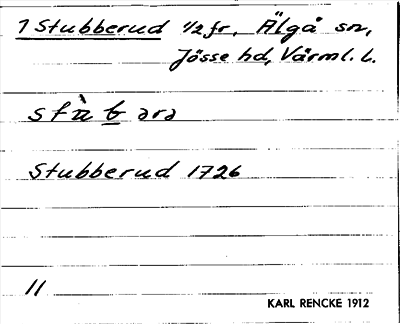 1 Stubberud 1/2 fr, Älgå sn,
Jösse hd, Värml. l.
Stubberud 1726
11
KARL RENCKE 1912